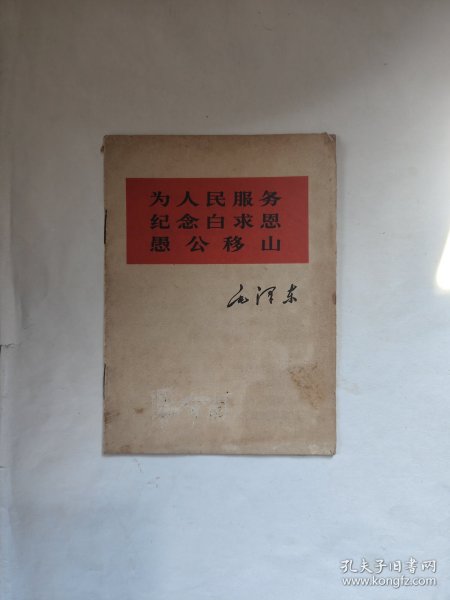 为人民服务
纪念白求恩
愚公移山
毛泽东
孔夫子旧书网
www.kongfz.com